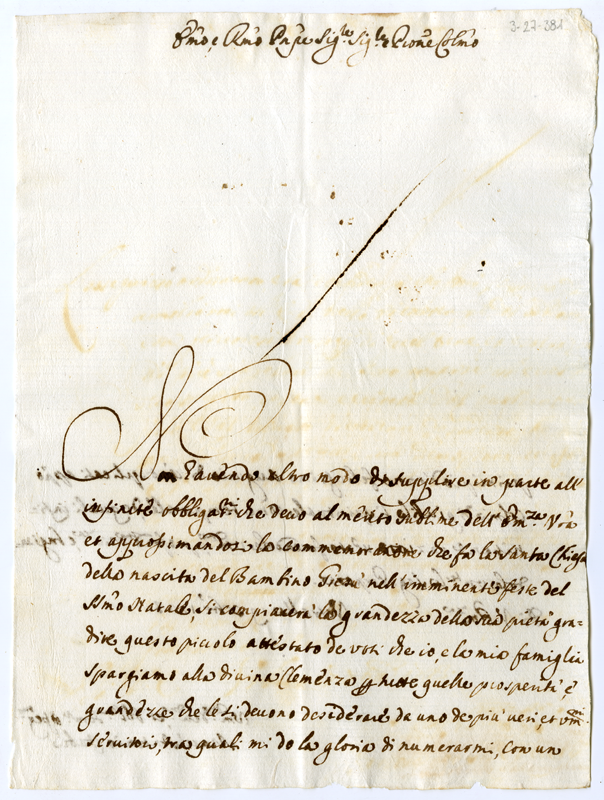 3-27-381
Emo, e Rmo Pnpe Sigre Sigre e Prone Colmo
Non havendo altro modo di supplire in parte all'
infinite obbligatni che devo al merito sublime dell' Emza Vra
et approssimandosi la commemoratione che fa la Santa Chiesa
della nascita del Bambino Giesù nell'imminenti feste del
SSmo Natale, si compiacerà la grandezza della sua pietà gra=
dire questo piccolo attestato de voti che io, e la mia famiglia
spargiamo alla divina Clemenza p tutte quelle prosperità e
grandezze che le si devono desiderare da uno de più veri, et umi
servitori, tra quali mi do la gloria di numerarmi, con un